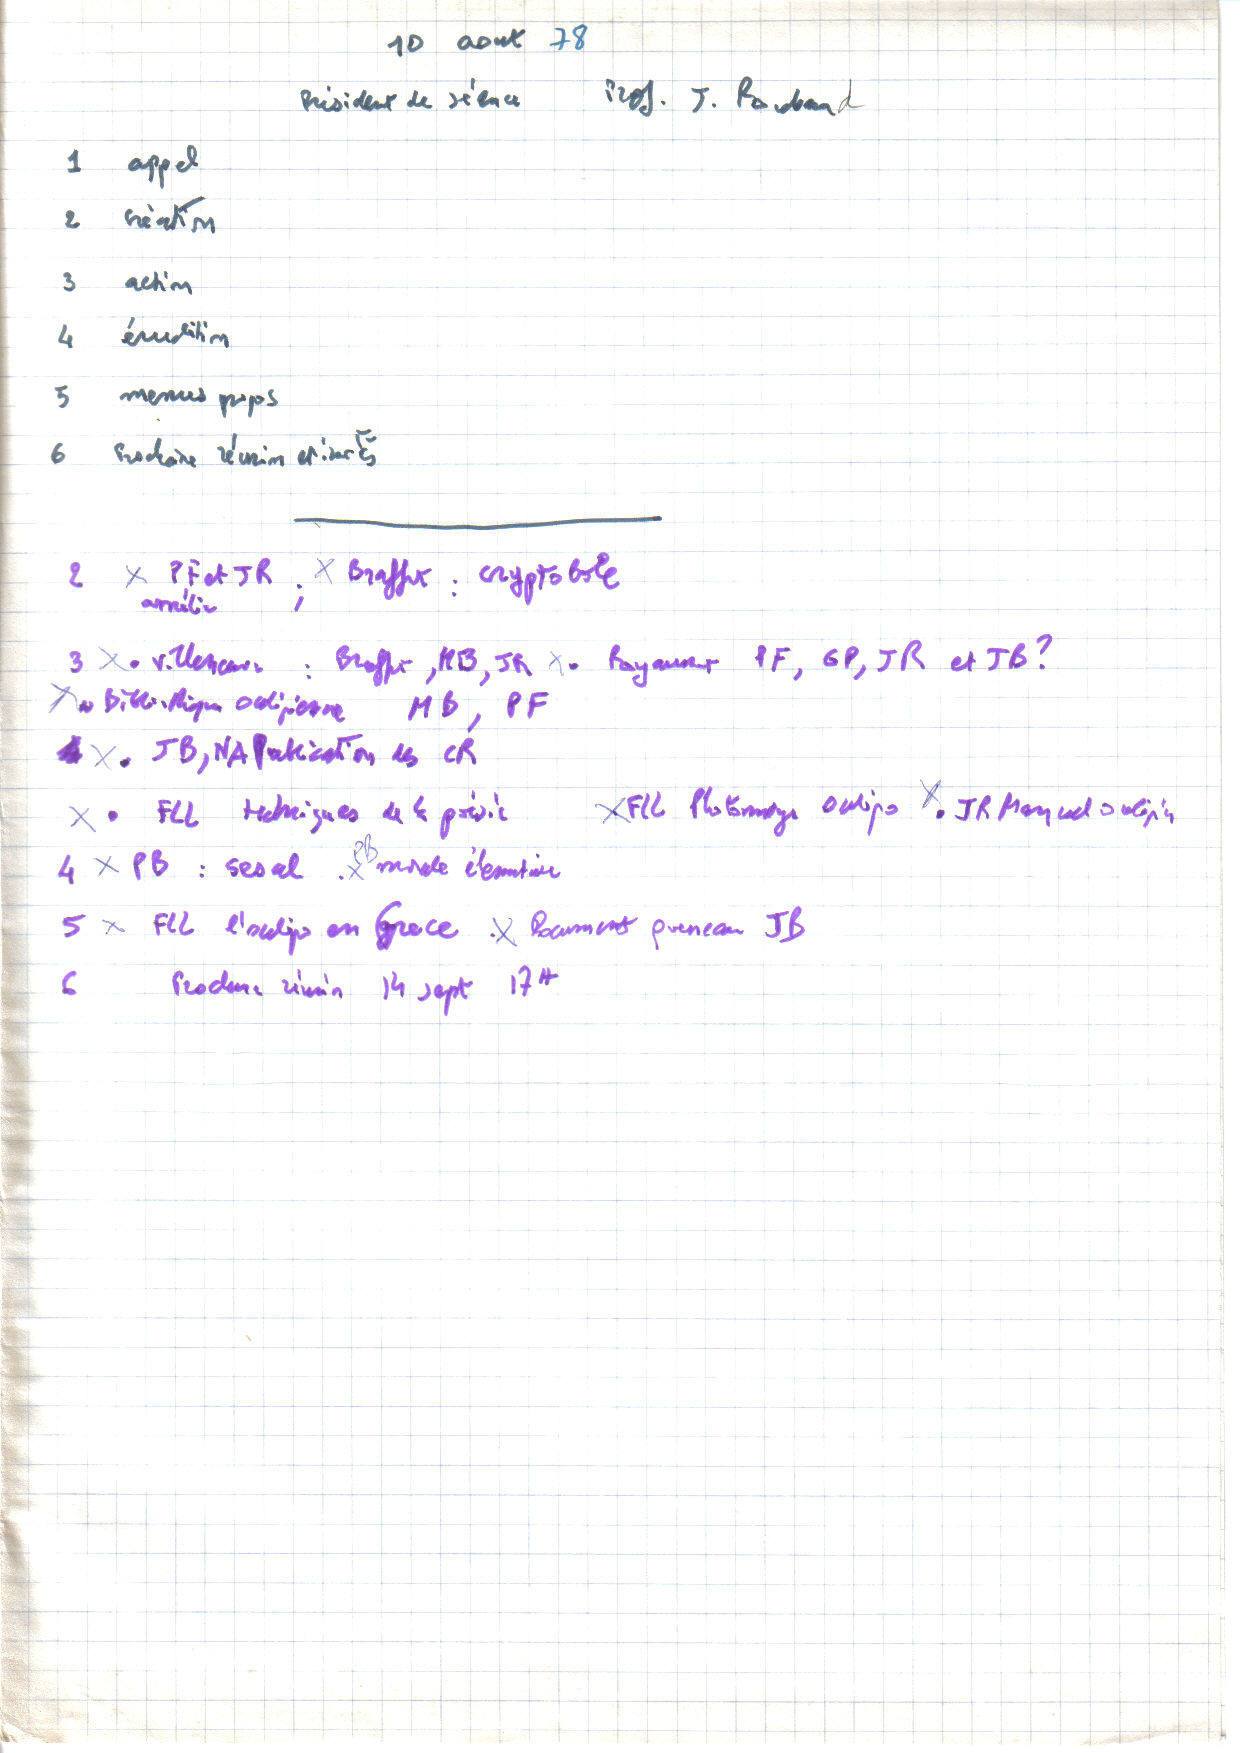 10 aout 78
Président de séance Prof. J. Roubaud
1 appel
2 création
3 action
4 érudition
5 menus propos
6 Prochaine réunion et
2 × PF et JR ; × Braffort : cryptobole
3 × • Villeneuve : Braffort, MB, JR × • Royaumont PF, GP, JR et JB ?
× • Bibliothèque oulipienne MB, PF
× • JB, NA Publication des CR
× • FLL techniques de la poésie × FLL Photomaton oulipo × • JR Manuel oulipien
4 × PB : sesal . × PB morale élémentaire
5 × FLL l'oulipo en Grece . × Document queneau JB
6 Prochaine réunion 14 sept 17H